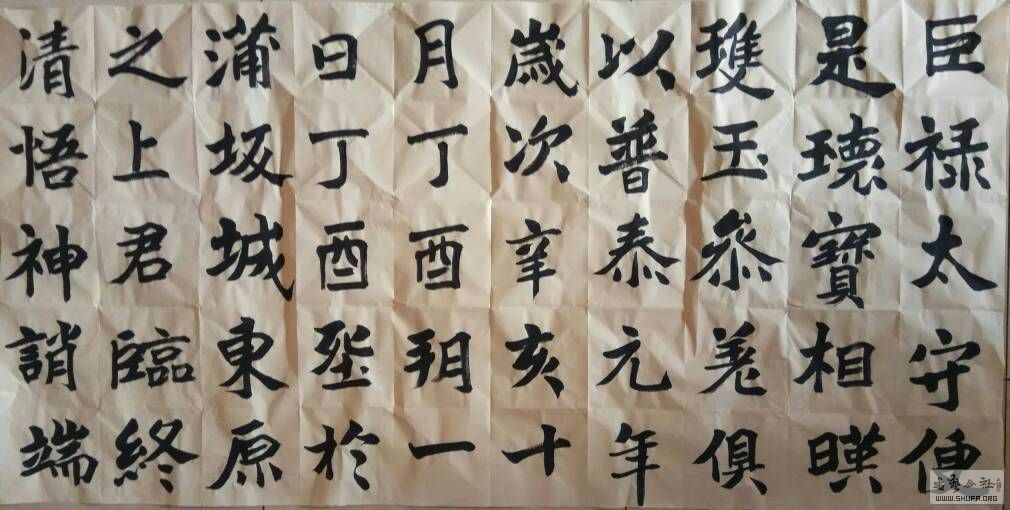 巨禄太守便
是瓌寶相暎
瓊玉叅差俱
以普泰元年
歲次辛亥十
月丁酉朔一
日丁酉塟於
蒲坂城東原
之上君臨終
清悟神誚端
WWW.SHUFA.ORG